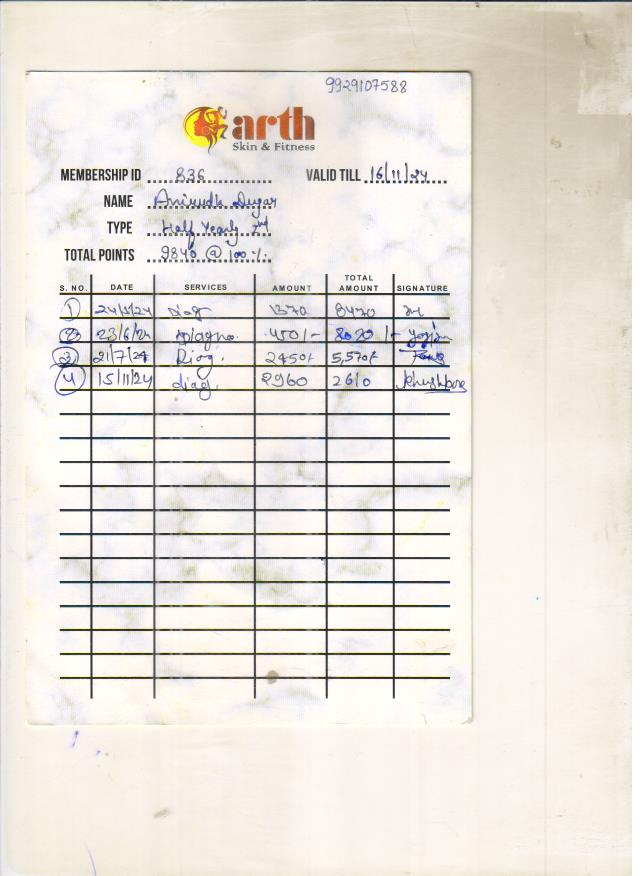 9929107588
arth
Skin & Fitness
MEMBERSHIP ID 836 VALID TILL 16/11/24
NAME Anirudh Dugar
TYPE Half Yearly
TOTAL POINTS 9840 @ 100 %.
S. NO. DATE SERVICES AMOUNT TOTAL AMOUNT SIGNATURE
1 24/5/24 Diag 1370 8470
2 23/6/24 Diagno. 450/- 8020/-
3 21/7/24 Diag. 2450/ 5,570/
4 15/11/24 diag. 2960 2610 Khushboo